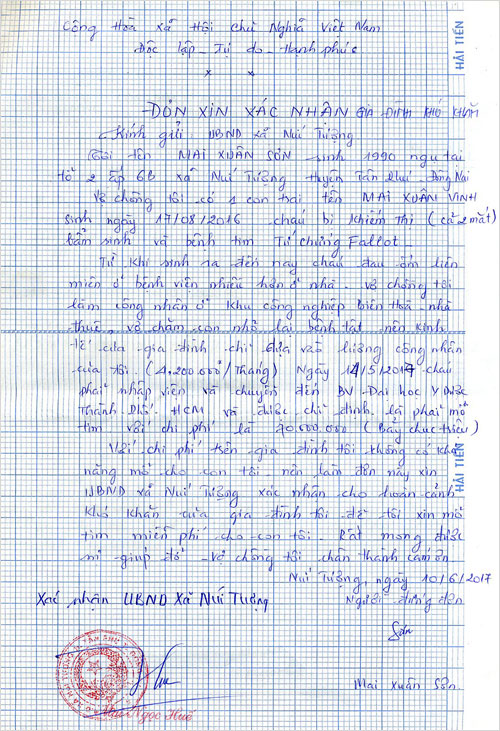 Cộng Hòa Xã Hội Chủ Nghĩa Việt Nam
Độc lập - Tự do - Hạnh phúc
HẢI TIẾN
ĐƠN XIN XÁC NHẬN GIA ĐÌNH KHÓ KHĂN
Kính gửi UBND xã Núi Tượng
Tôi tên MAI XUÂN SƠN sinh 1990 ngụ tại
tổ 2 ấp 6B xã Núi Tượng huyện Tân Phú - Đồng Nai
Vợ chồng tôi có 1 con trai tên MAI XUÂN VINH
sinh ngày 17/08/2016 cháu bị khiếm thị (cả 2 mắt)
bẩm sinh và bệnh tim Tứ chứng Fallot -
Từ khi sinh ra đến nay cháu đau ốm liên
miên ở bệnh viện nhiều hơn ở nhà. Vợ chồng tôi
làm công nhân ở khu công nghiệp Biên Hoà nhà
thuê, vợ chăm con nhỏ lại bệnh tật nên kinh
tế của gia đình chỉ dựa vào lương công nhân
của tôi. (4.200.000đ/Tháng) Ngày 14/5/2017 cháu
phải nhập viện và chuyển đến BV Đại học Y Dược
Thành Phố. HCM và được chỉ định là phải mổ
tim với chi phí là 70.000.000 (Bảy chục triệu)
Với chi phí trên gia đình tôi không có khả
năng mổ cho con tôi nên làm đơn này xin
UBND xã Núi Tượng xác nhận cho hoàn cảnh
khó khăn của gia đình tôi để tôi xin mổ
tim miễn phí cho con tôi. Rất mong được
sự giúp đỡ vợ chồng tôi chân thành cảm ơn
HẢI TIẾN
Núi Tượng, ngày 10/6/2017
Xác nhận UBND Xã Núi Tượng
Người đứng đơn
Sơn
Mai Xuân Sơn.
Ngọc Huế